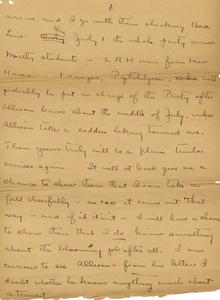 6
arrive and I go with them checking Base
Line. On July 1 the whole party arrives
Mostly students - 2 R.H. men from New
Haven. I surmise, will
probably be put in charge of the Party after
Allison leaves about the middle of July, unless
Allison takes a sudden liking toward me.
Then yours truly will be a plain timber
cruiser again. It will at least give me a
chance to show them that I can take a
fall cheerfully - in case it comes out that
way - and if it don't - I will have a chance
to show them that I do know something
about the blooming job after all. I am
curious to see Allison - from his letters I
doubt whether he knows anything much about
a transit